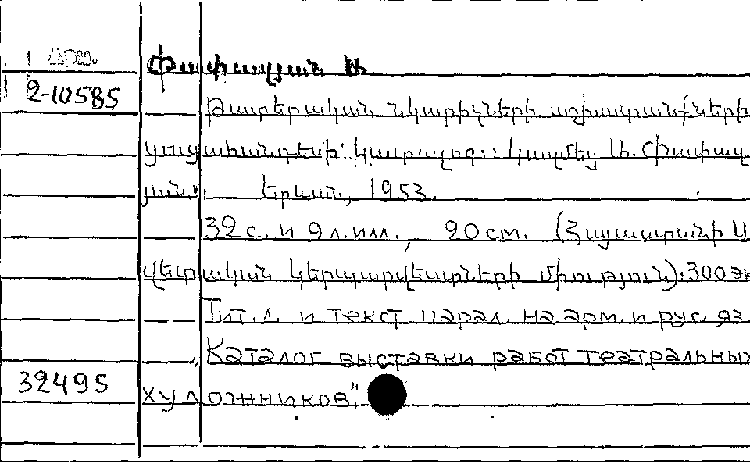 Փափազյան Ա.
2-10585
Թատերական նկարիչների աշխատանքների
ցուցահանդես: Կատալոգ: Կազմեց Ա. Փափազ
յան: Երևան, 1953.
32 с. и 9 л. илл., 20 см. (Հայաստանի Ս
վետական կերպարվեստների միություն). 300 эк
Тит. л. и текст парал. на арм. и рус. яз.
„Каталог выставки работ театральных
32495
художников"